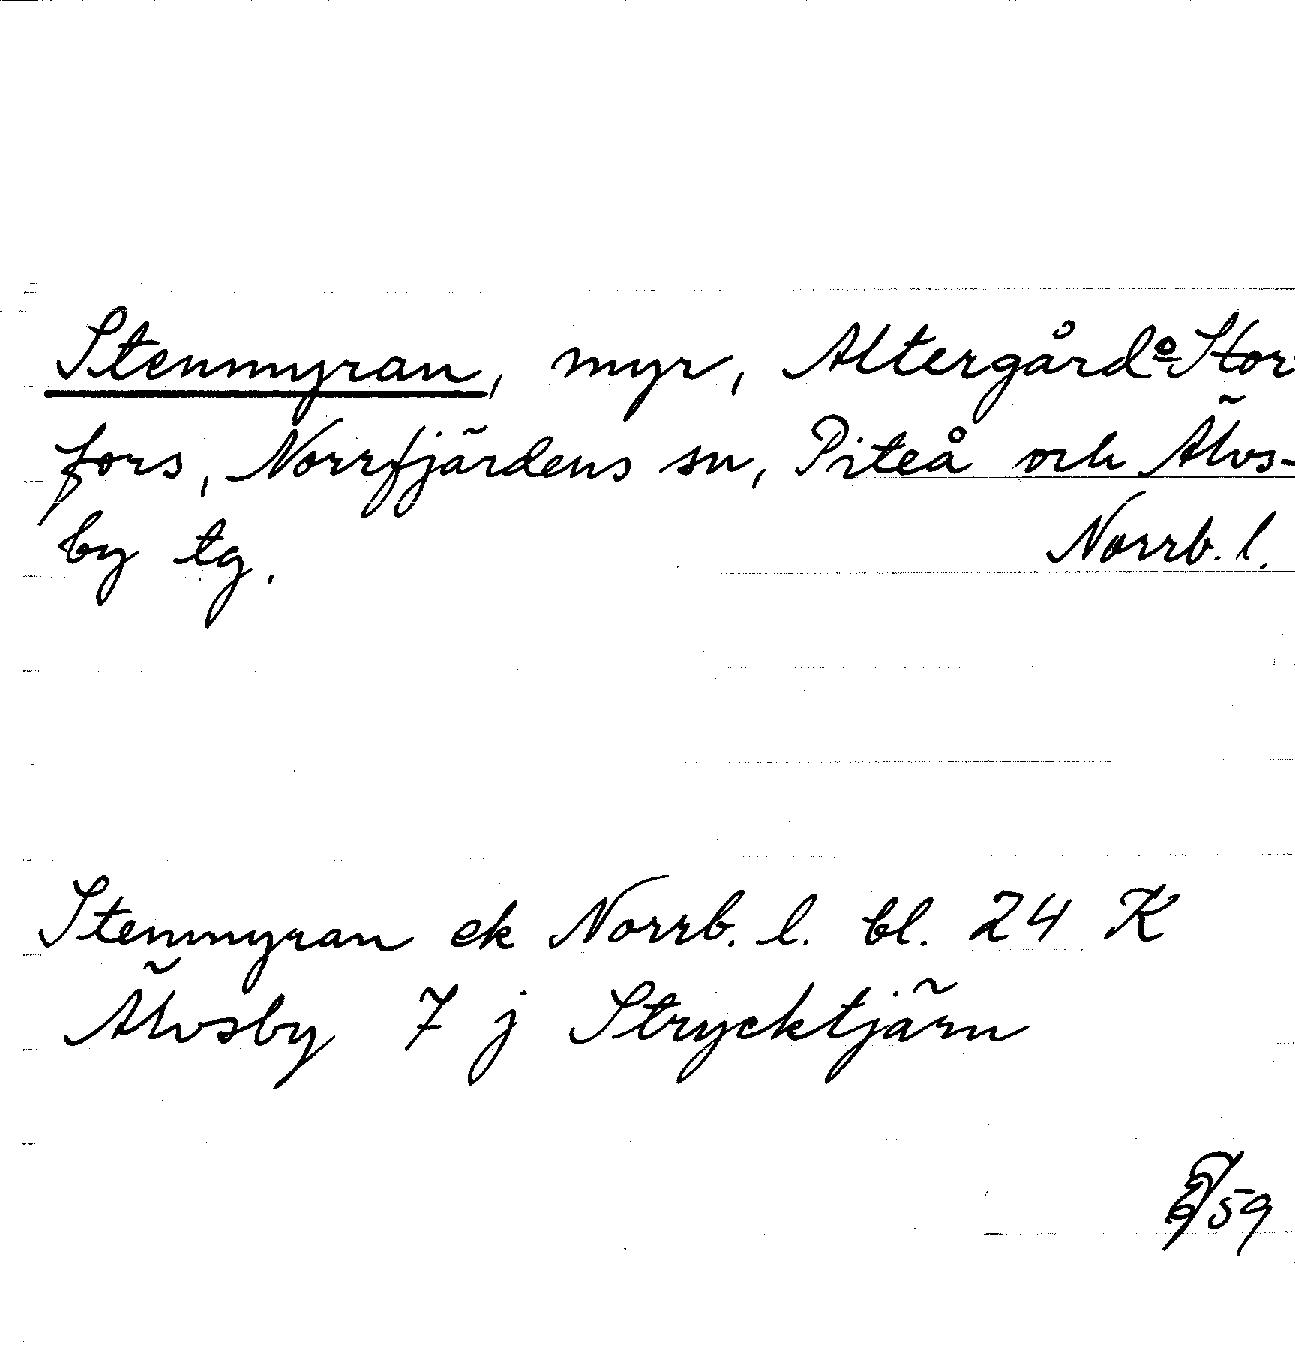 Stenmyran, myr, Altergård o Stor
fors, Norrfjärdens sn, Piteå och Älvs-
by tg. Norrb. l.
Stenmyran ek Norrb. l. bl. 24 K
Älvsby 7 j Strycktjärn
59